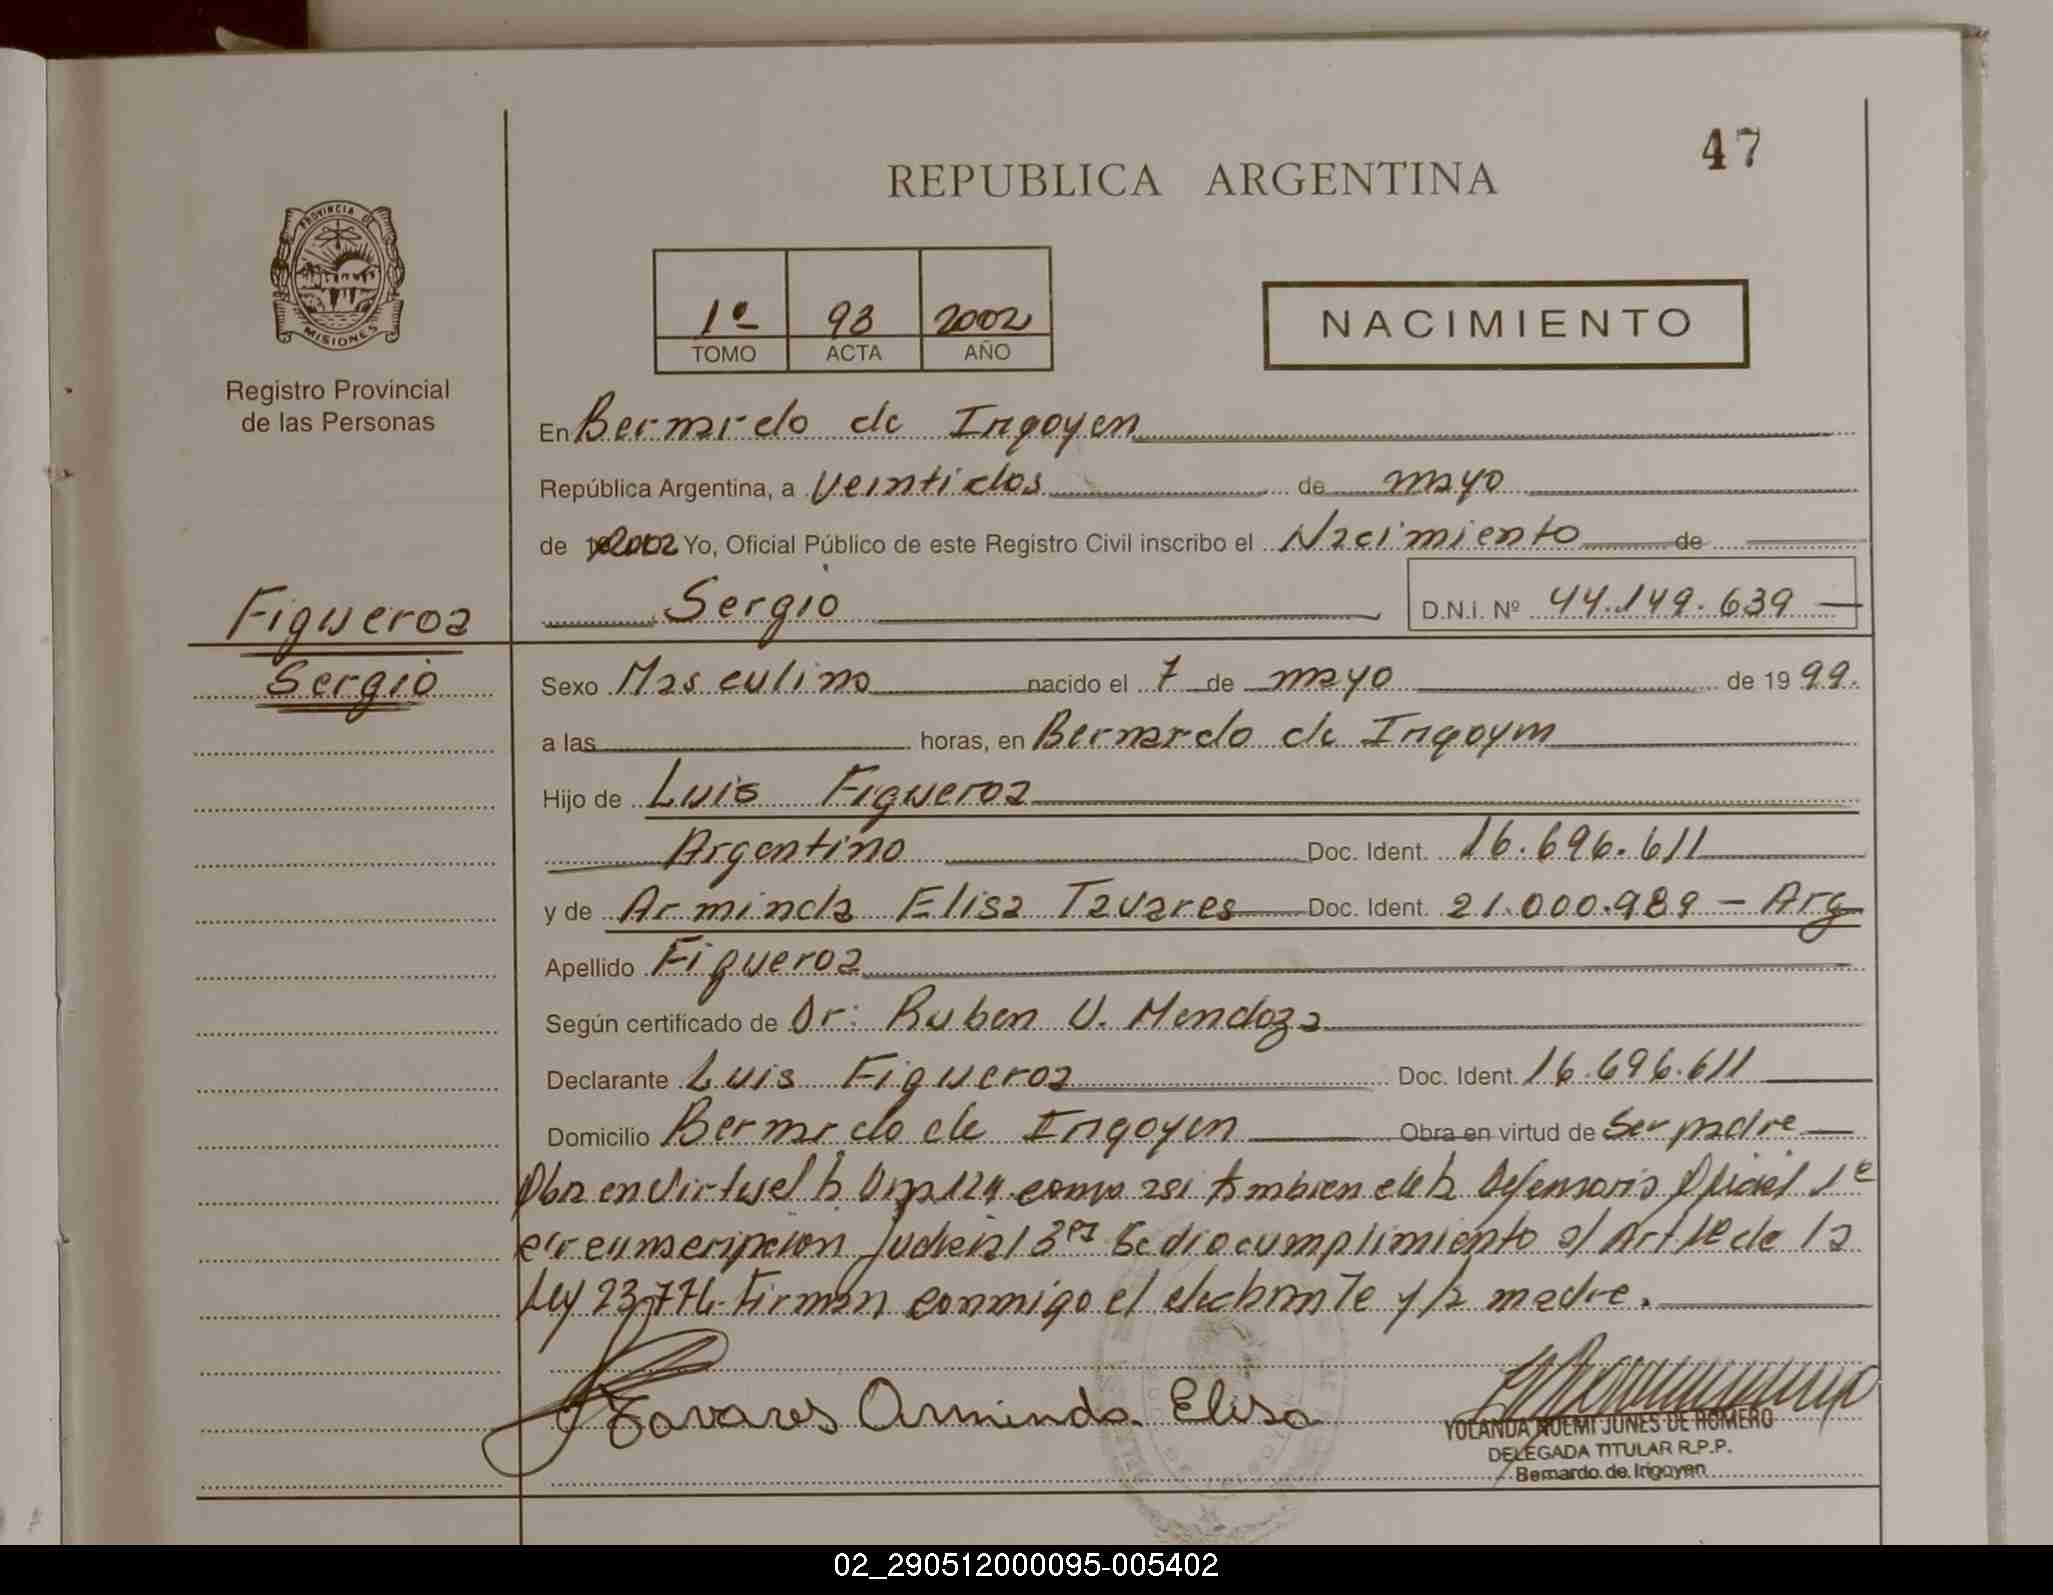 47
REPUBLICA ARGENTINA
PROVINCIA DE
MISIONES
Registro Provincial
de las Personas
1º 93 2002
TOMO ACTA AÑO
NACIMIENTO
En Bernardo de Irigoyen
República Argentina, a veintidos de mayo
de 2002 Yo, Oficial Público de este Registro Civil inscribo el Nacimiento de
Sergio D.N.I. Nº 44.149.639
Figueroa
Sergio
Sexo Masculino nacido el 7 de mayo de 1999.
a las horas, en Bernardo de Irigoyen
Hijo de Luis Figueroa
Argentino Doc. Ident. 16.696.611
y de Arminda Elisa Tavares Doc. Ident. 21.000.989 - Arg
Apellido Figueroa
Según certificado de Dr: Ruben V. Mendoza
Declarante Luis Figueroa Doc. Ident. 16.696.611
Domicilio Bernardo de Irigoyen Obra en virtud de Ser padre
Obra en virtud la como asi tambien de la Defensoria Oficial 1º
circunscripcion judicial 3ra Se dio cumplimiento al Art 1º de la
Ley 23.776. Firman conmigo el declarante y la madre.
Tavares Arminda Elisa
YOLANDA NOEMI JUNES DE ROMERO
DELEGADA TITULAR R.P.P.
Bernardo de Irigoyen
02_290512000095-005402